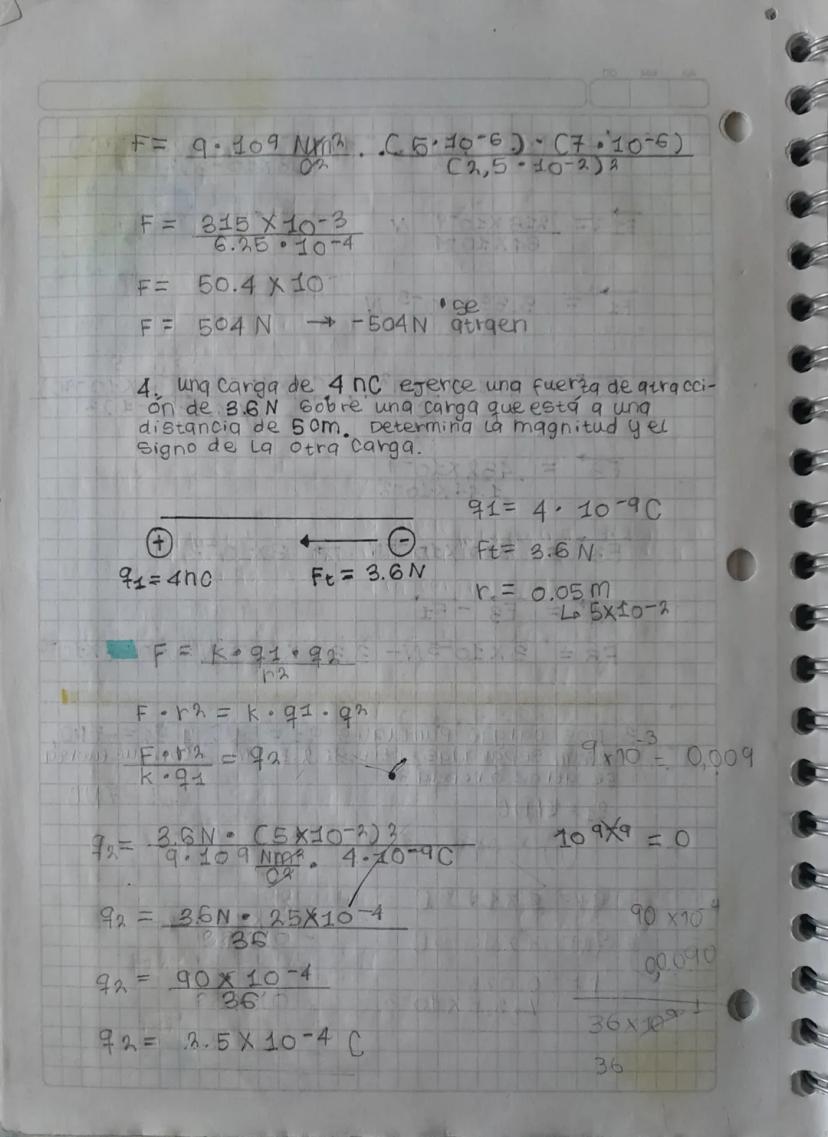 F = 9 · 10⁹ Nm²/C² · (5 · 10⁻⁶) · (7 · 10⁻⁶) / (2,5 · 10⁻²)²
F = 315 × 10⁻³ / 6.25 · 10⁻⁴
F = 50.4 × 10
F = 504 N → -504N • se atraen
4. una carga de 4 nC ejerce una fuerza de atracci-
ón de 3.6 N sobre una carga que está a una
distancia de 5 cm. Determina la magnitud y el
signo de la otra carga.
q1 = 4 · 10⁻⁹ C
+ -
Ft = 3.6 N
q1 = 4nC Ft = 3.6 N
r = 0.05 m
↳ 5×10⁻²
F = k · q1 · q2 / r²
F · r² = k · q1 · q2
F · r² / k · q1 = q2
9×10⁻³ = 0,009
q2 = 3.6N · (5×10⁻²)² / 9 · 10⁹ Nm²/C² · 4 · 10⁻⁹ C
10⁹⁻⁹ = 0
q2 = 3.6N · 25×10⁻⁴ / 36
q2 = 90 × 10⁻⁴ / 36
36
q2 = 2.5 × 10⁻⁴ C